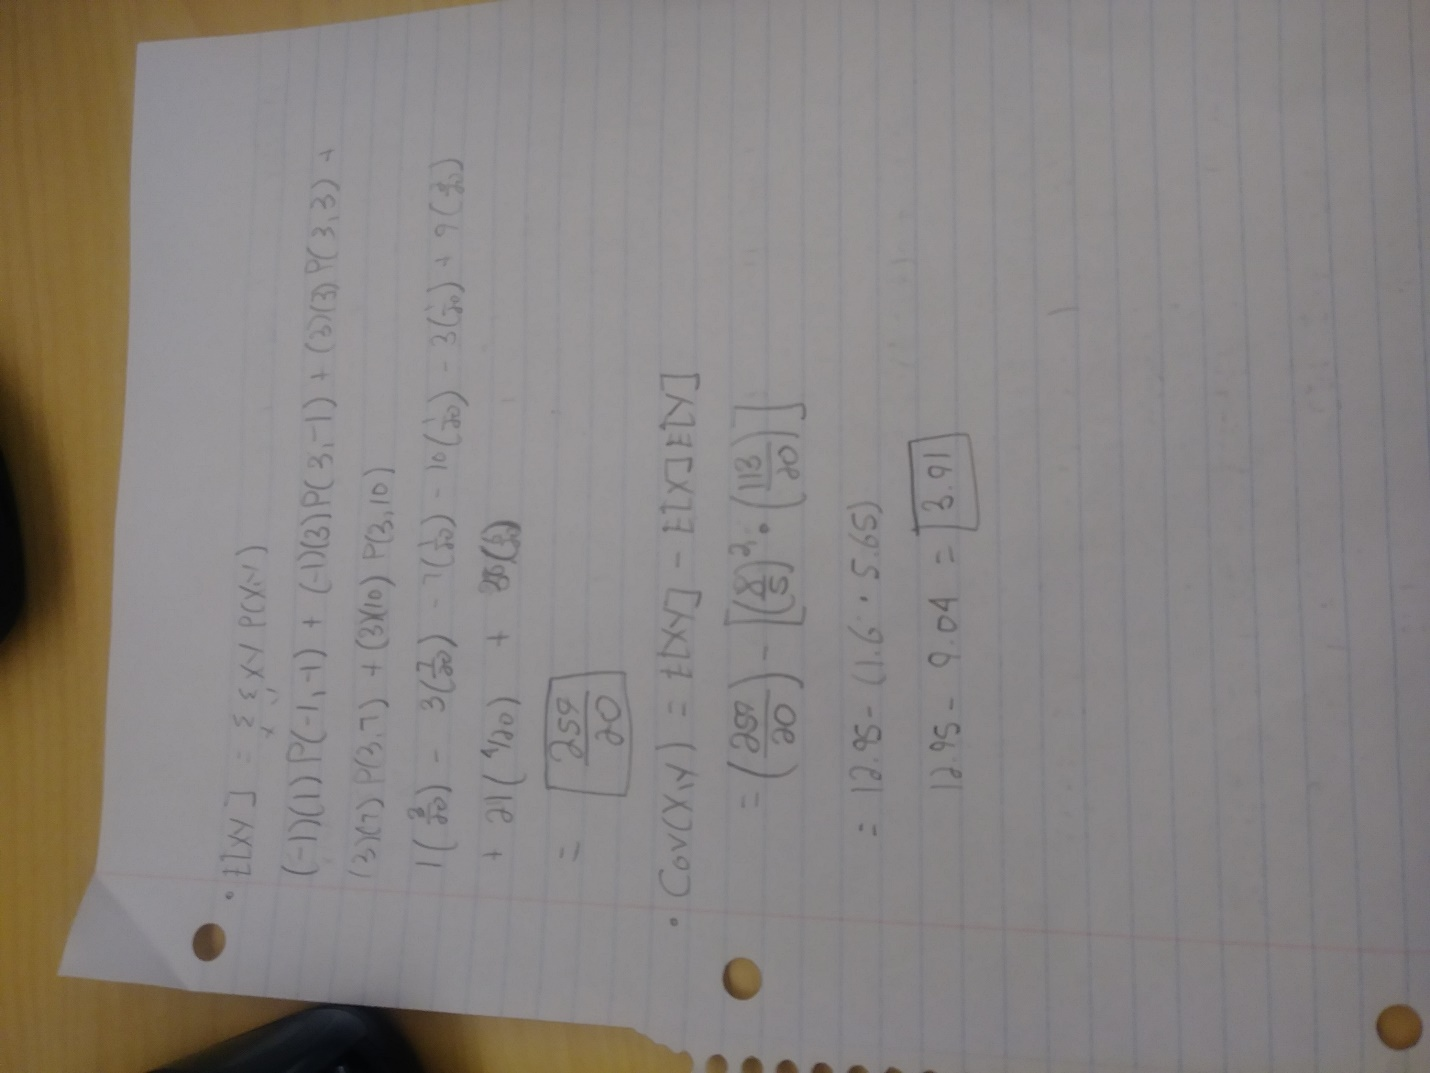 • E[XY] = Σ Σ XY P(X,Y)
x y
(-1)(1)P(-1,-1) + (-1)(3)P(3,-1) + (3)(3)P(3,3) +
(3)(7)P(3,7) + (3)(10)P(3,10)
1(3/20) - 3(/20) - 7(1/20) - 10(1/20) - 3(1/20) + 9(/20)
+ 21(4/20) + (6/20)
= 259/20
• Cov(X,Y) = E[XY] - E[X]E[Y]
= (259/20) - [(8/5) · (113/20)]
= 12.95 - (1.6 · 5.65)
12.95 - 9.04 = 3.91